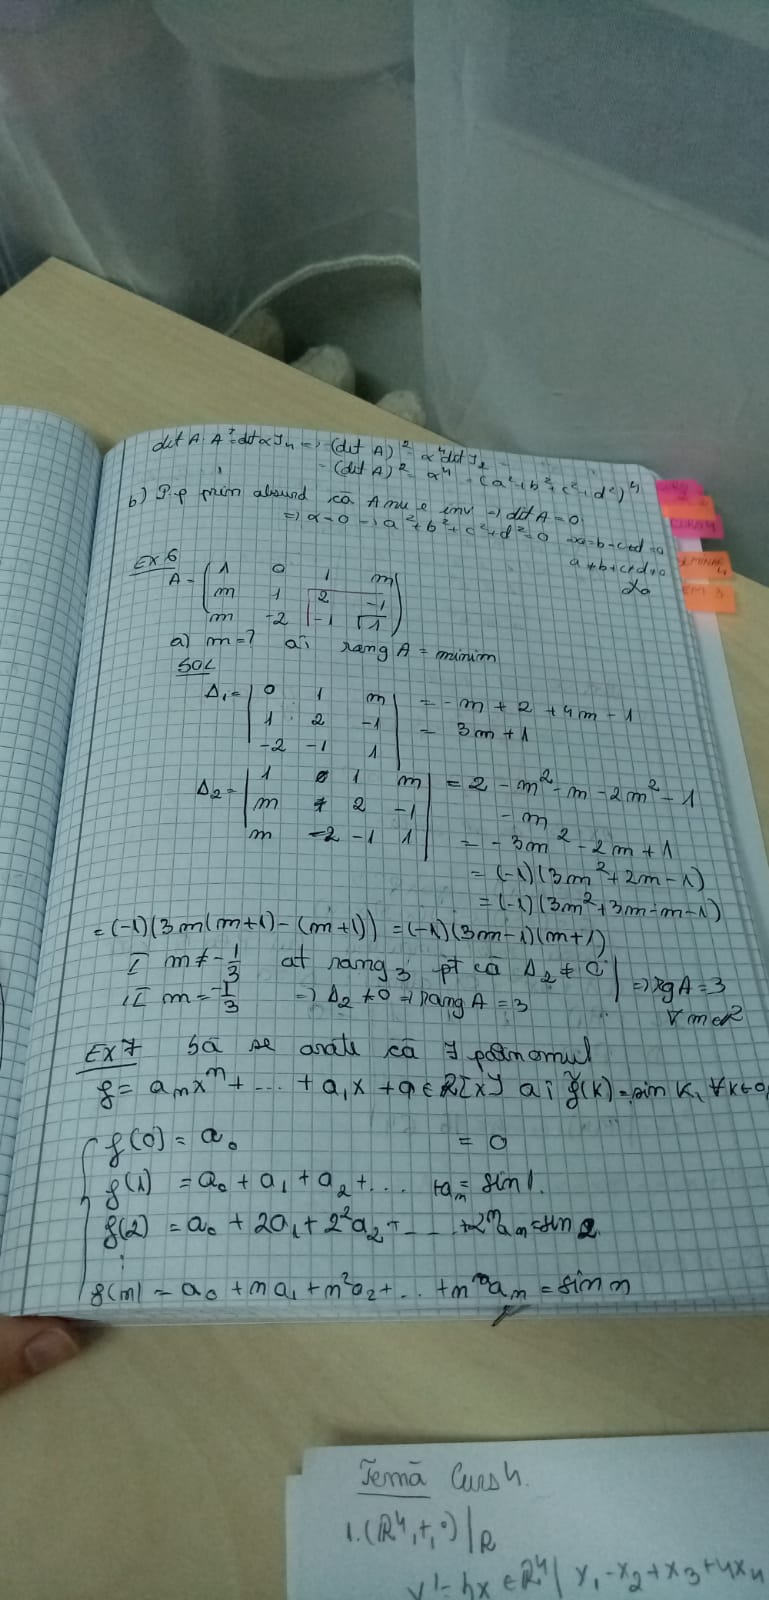 det A · Aᵗ = det αI₄ => (det A)² = α⁴ det I₂
= (det A)² = α⁴ = (a²+b²+c²+d²)⁴
b) P.p prin absurd că A nu e inv => det A = 0
=> α = 0 => a²+b²+c²+d² = 0 => a=b=c=d=0
a+b+c+d≠0
Ex 6
A = ( 1 0 1 m
m 1 2 -1
m -2 -1 1 )
a) m=? aî rang A = minim
SOL
Δ₁ = | 0 1 m | = -m + 2 + 4m - 1
| 1 2 -1 | = 3m + 1
| -2 -1 1 |
Δ₂ = | 1 0 1 m | = 2 - m² - m - 2m² - 1
| m 1 2 -1 | - m
| m -2 -1 1 | = -3m² - 2m + 1
= (-1)(3m² + 2m - 1)
= (-1)(3m² + 3m - m - 1)
= (-1)(3m(m+1) - (m+1)) = (-1)(3m-1)(m+1)
I m ≠ -1/3 at rang 3 pt că Δ₂ ≠ 0 | => rg A = 3
II m = -1/3 => Δ₂ ≠ 0 => rang A = 3 ∀ m∈R
Ex 7 Să se arate că ∃ polinomul
f = aₙxⁿ + ... + a₁x + a ∈ R[x] aî f̃(k) = sin k, ∀ k=0,
f(0) = a₀ = 0
f(1) = a₀ + a₁ + a₂ + ... + aₙ = sin 1.
f(2) = a₀ + 2a₁ + 2²a₂ + ... + 2ⁿaₙ = sin 2
⋮
f(n) = a₀ + na₁ + n²a₂ + ... + nⁿaₙ = sin n
Temă Curs 4.
1. (R⁴, +, ·)|R
V' = {x ∈ R⁴ | x₁ - x₂ + x₃ + 4x₄